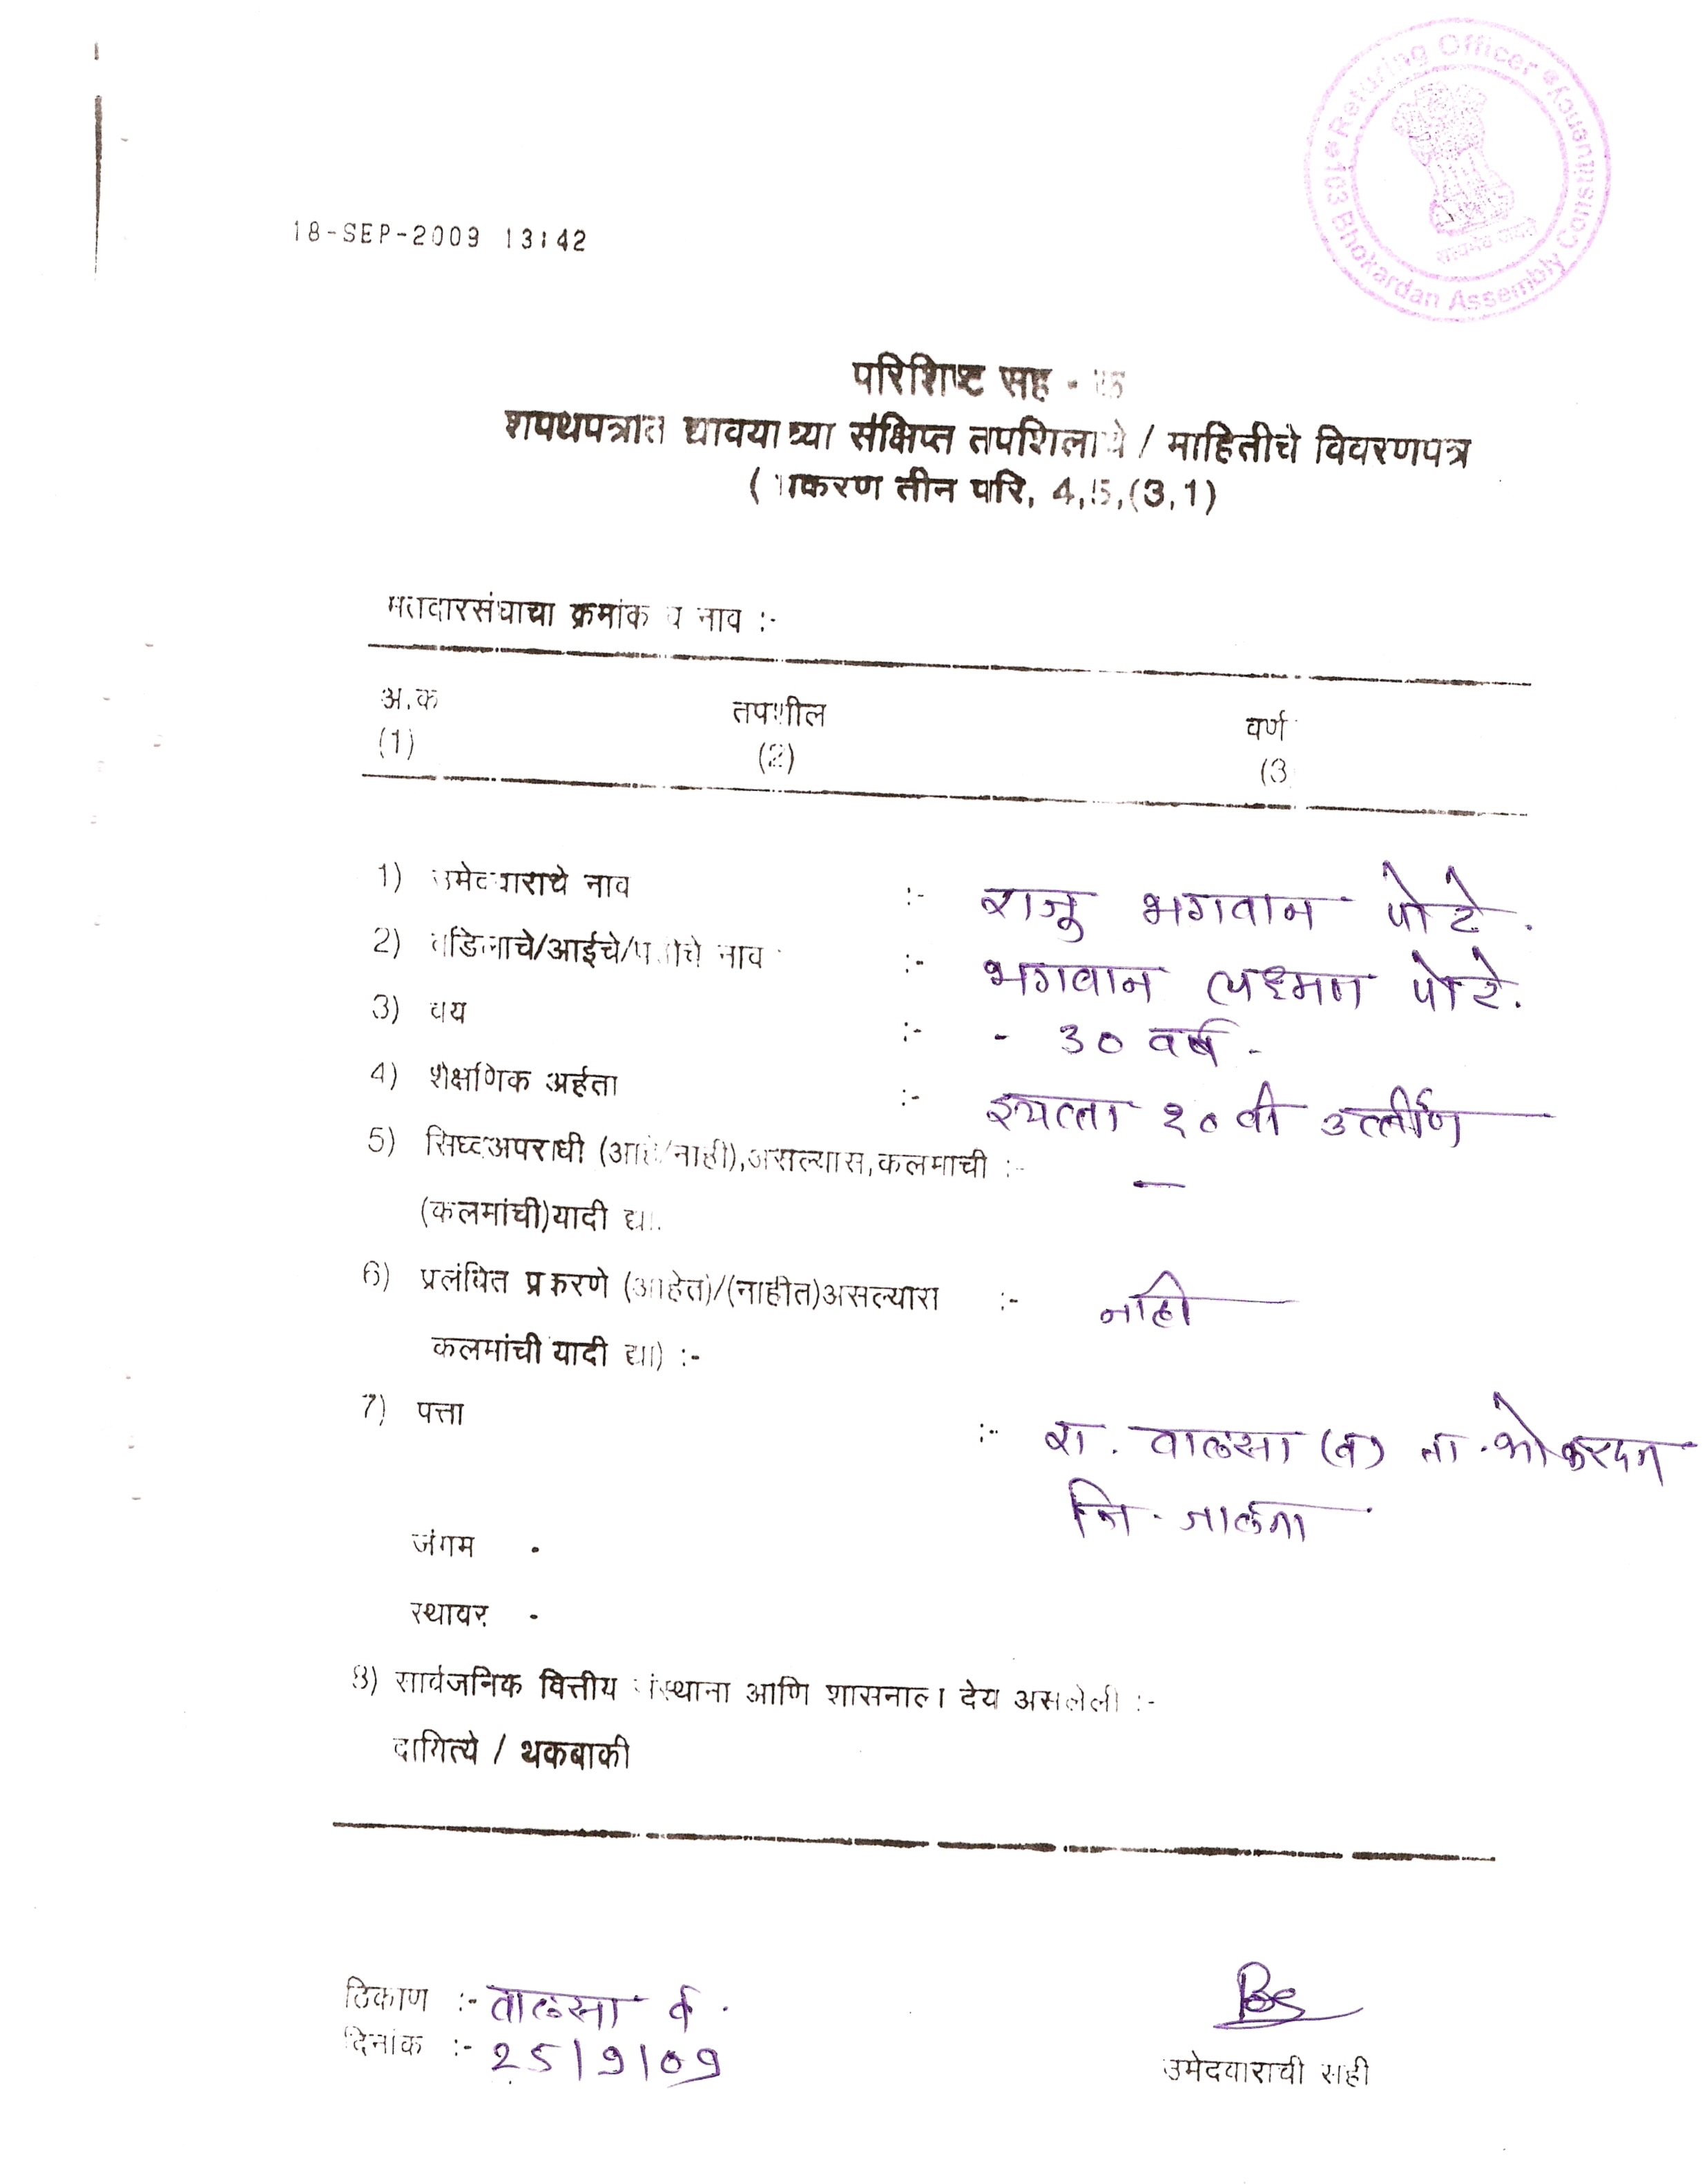 Returning Officer
103 Bhokardan Assembly Constituency
18-SEP-2009 13:42
परिशिष्ट सह -
शपथपत्रात द्यावयाच्या संक्षिप्त तपशिलाचे / माहितीचे विवरणपत्र
( तीन परि, 4,5,(3,1)
मतदारसंघाचा क्रमांक व नाव :-
अ.क तपशील वर्ण
(1) (2) (3
1) उमेदवाराचे नाव :- राजु भगवान पोटे.
2) वडिलाचे/आईचे/पतीचे नाव :- भगवान लक्ष्मण पोटे.
3) वय :- - 30 वर्ष -
4) शैक्षणिक अर्हता :- इयत्ता १० वी उत्तीर्ण
5) सिध्दअपराधी (आहे/नाही),असल्यास,कलमाची :- —
(कलमांची)यादी द्या.
6) प्रलंबित प्रकरणे (आहेत)/(नाहीत)असल्यास :- नाही
कलमांची यादी द्या) :-
7) पत्ता :- रा. वालसा (व) ता. भोकरदन
जि - जालना
जंगम -
स्थावर -
8) सार्वजनिक वित्तीय संस्थाना आणि शासनाला देय असलेली :-
दायित्वे / थकबाकी
ठिकाण :- वालसा व.
दिनांक :- 25/9/09
उमेदवाराची सही